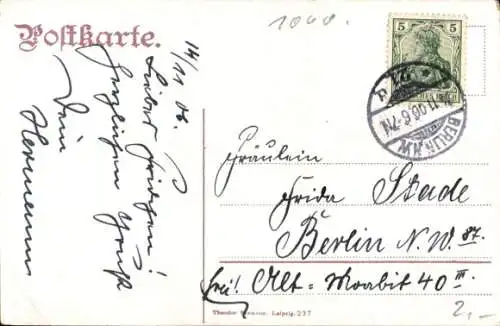 Postkarte.
1000.
14/11 06.
Lieber Fridchen!
Herzlichen Gruß
Dein
Hermann
5 5
BERLIN NW
Fräulein
Frida Stade
Berlin N.W. 87.
frei! Alt-Moabit 40 III.
Theodor Leipzig. 237
2,-